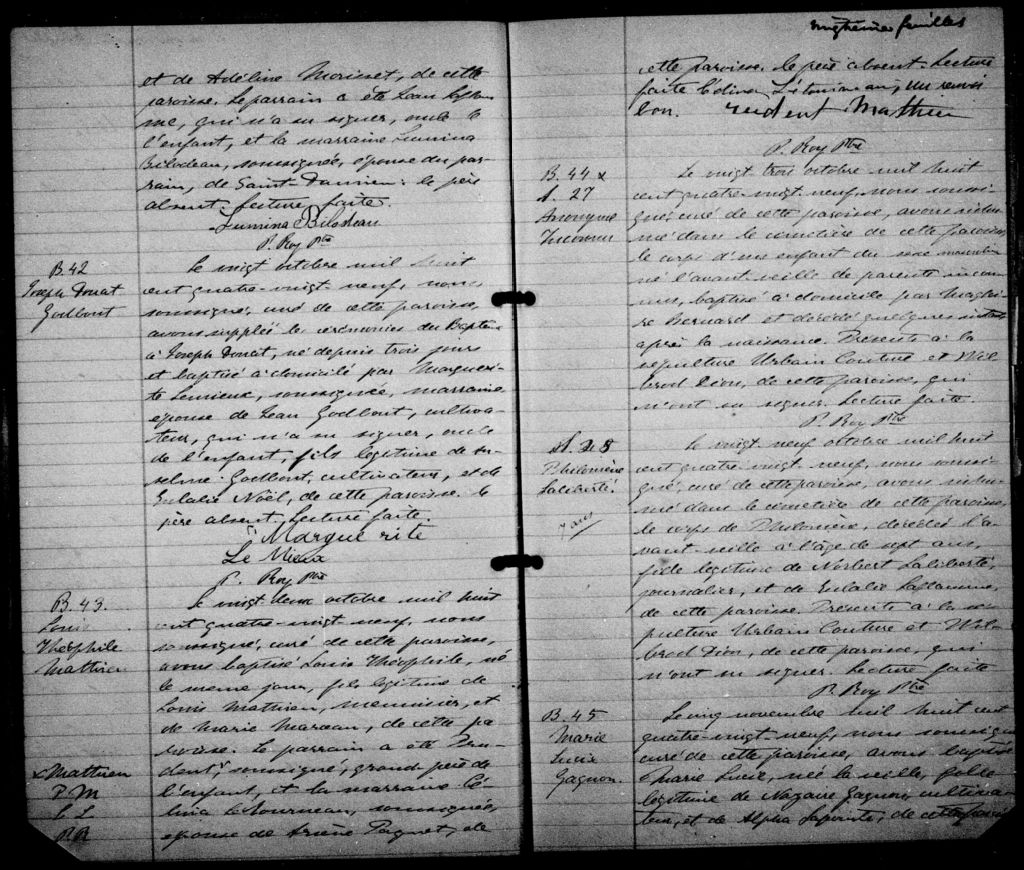 et de Adéline Morisset, de cette
paroisse. Le parrain a été Jean
me, qui n'a su signer, oncle de
l'enfant, et la marraine Lumina
Bilodeau, soussignée, épouse du par-
rain, de Saint-Damien: le père
absent. Lecture faite.
Lumina Bilodeau
P. Roy Ptre
B. 42
Joseph Donat
Godbout
Le vingt octobre mil huit
cent quatre-vingt neuf, nous,
soussigné, curé de cette paroisse,
avons supplé les cérémonies du Baptême
à Joseph Donat, né depuis trois jours
et baptisé à domicile par Margueri-
te Lemieux, soussignée, marraine
épouse de Jean Godbout, cultiva-
teur, qui n'a su signer, oncle
de l'enfant, fils légitime de An-
selme Godbout, cultivateur, et de
Eulalie Noël, de cette paroisse. Le
père absent. Lecture faite.
Marguerite
Le Mieux
P. Roy Ptre
B. 43.
Louis
Théophile
Mathieu
Le vingt deux octobre mil huit
cent quatre-vingt neuf, nous
soussigné, curé de cette paroisse,
avons baptisé Louis Théophile, né
le même jour, fils légitime de
Louis Mathieu, menuisier, et
de Marie Marceau, de cette pa
roisse. Le parrain a été Pru-
dent x, soussigné, grand-père de
l'enfant, et la marraine Cé-
lina Létourneau, soussignée,
épouse de Arsène Paquet, de
x Mathieu
P M
L L
P R
feuilles
cette paroisse. Le père absent. Lecture
faite Célina Létourneau, un renvoi
bon. prudent Mathieu
P. Roy Ptre
B. 44 x
S. 27
Anonyme
Inconnu
Le vingt trois octobre mil huit
cent quatre-vingt neuf, nous soussi-
gné, curé de cette paroisse, avons inhu-
mé dans le cimetière de cette paroisse
le corps d'un enfant du sexe masculin
né l'avant-veille de parents incon-
nus, baptisé à domicile par Magloi-
re Bernard et décédé quelques instants
après la naissance. Présents à la
sépulture Urbain Couture et Wil
brod Dion, de cette paroisse, qui
n'ont su signer. Lecture faite.
P. Roy Ptre
S. 28
Philomène
Laliberté.
7 ans
Le vingt neuf octobre mil huit
cent quatre-vingt neuf, nous soussi-
gné, curé de cette paroisse, avons inhu-
mé dans le cimetière de cette paroisse,
le corps de Philomène, décédée l'a-
vant-veille à l'âge de sept ans,
fille légitime de Norbert Laliberté,
journalier, et de Eulalie Laflamme,
de cette paroisse. Présents à la sé-
pulture Urbain Couture et Wil-
brod Dion, de cette paroisse, qui
n'ont su signer. Lecture faite
P. Roy Ptre
B. 45
Marie
Lucie
Gagnon.
Le cinq novembre mil huit cent
quatre-vingt-neuf, nous soussigné
curé de cette paroisse, avons baptisé
Marie Lucie, née la veille, fille
légitime de Nazaire Gagnon, cultiva-
teur, et de Alpha Lapointe, de cette paroisse